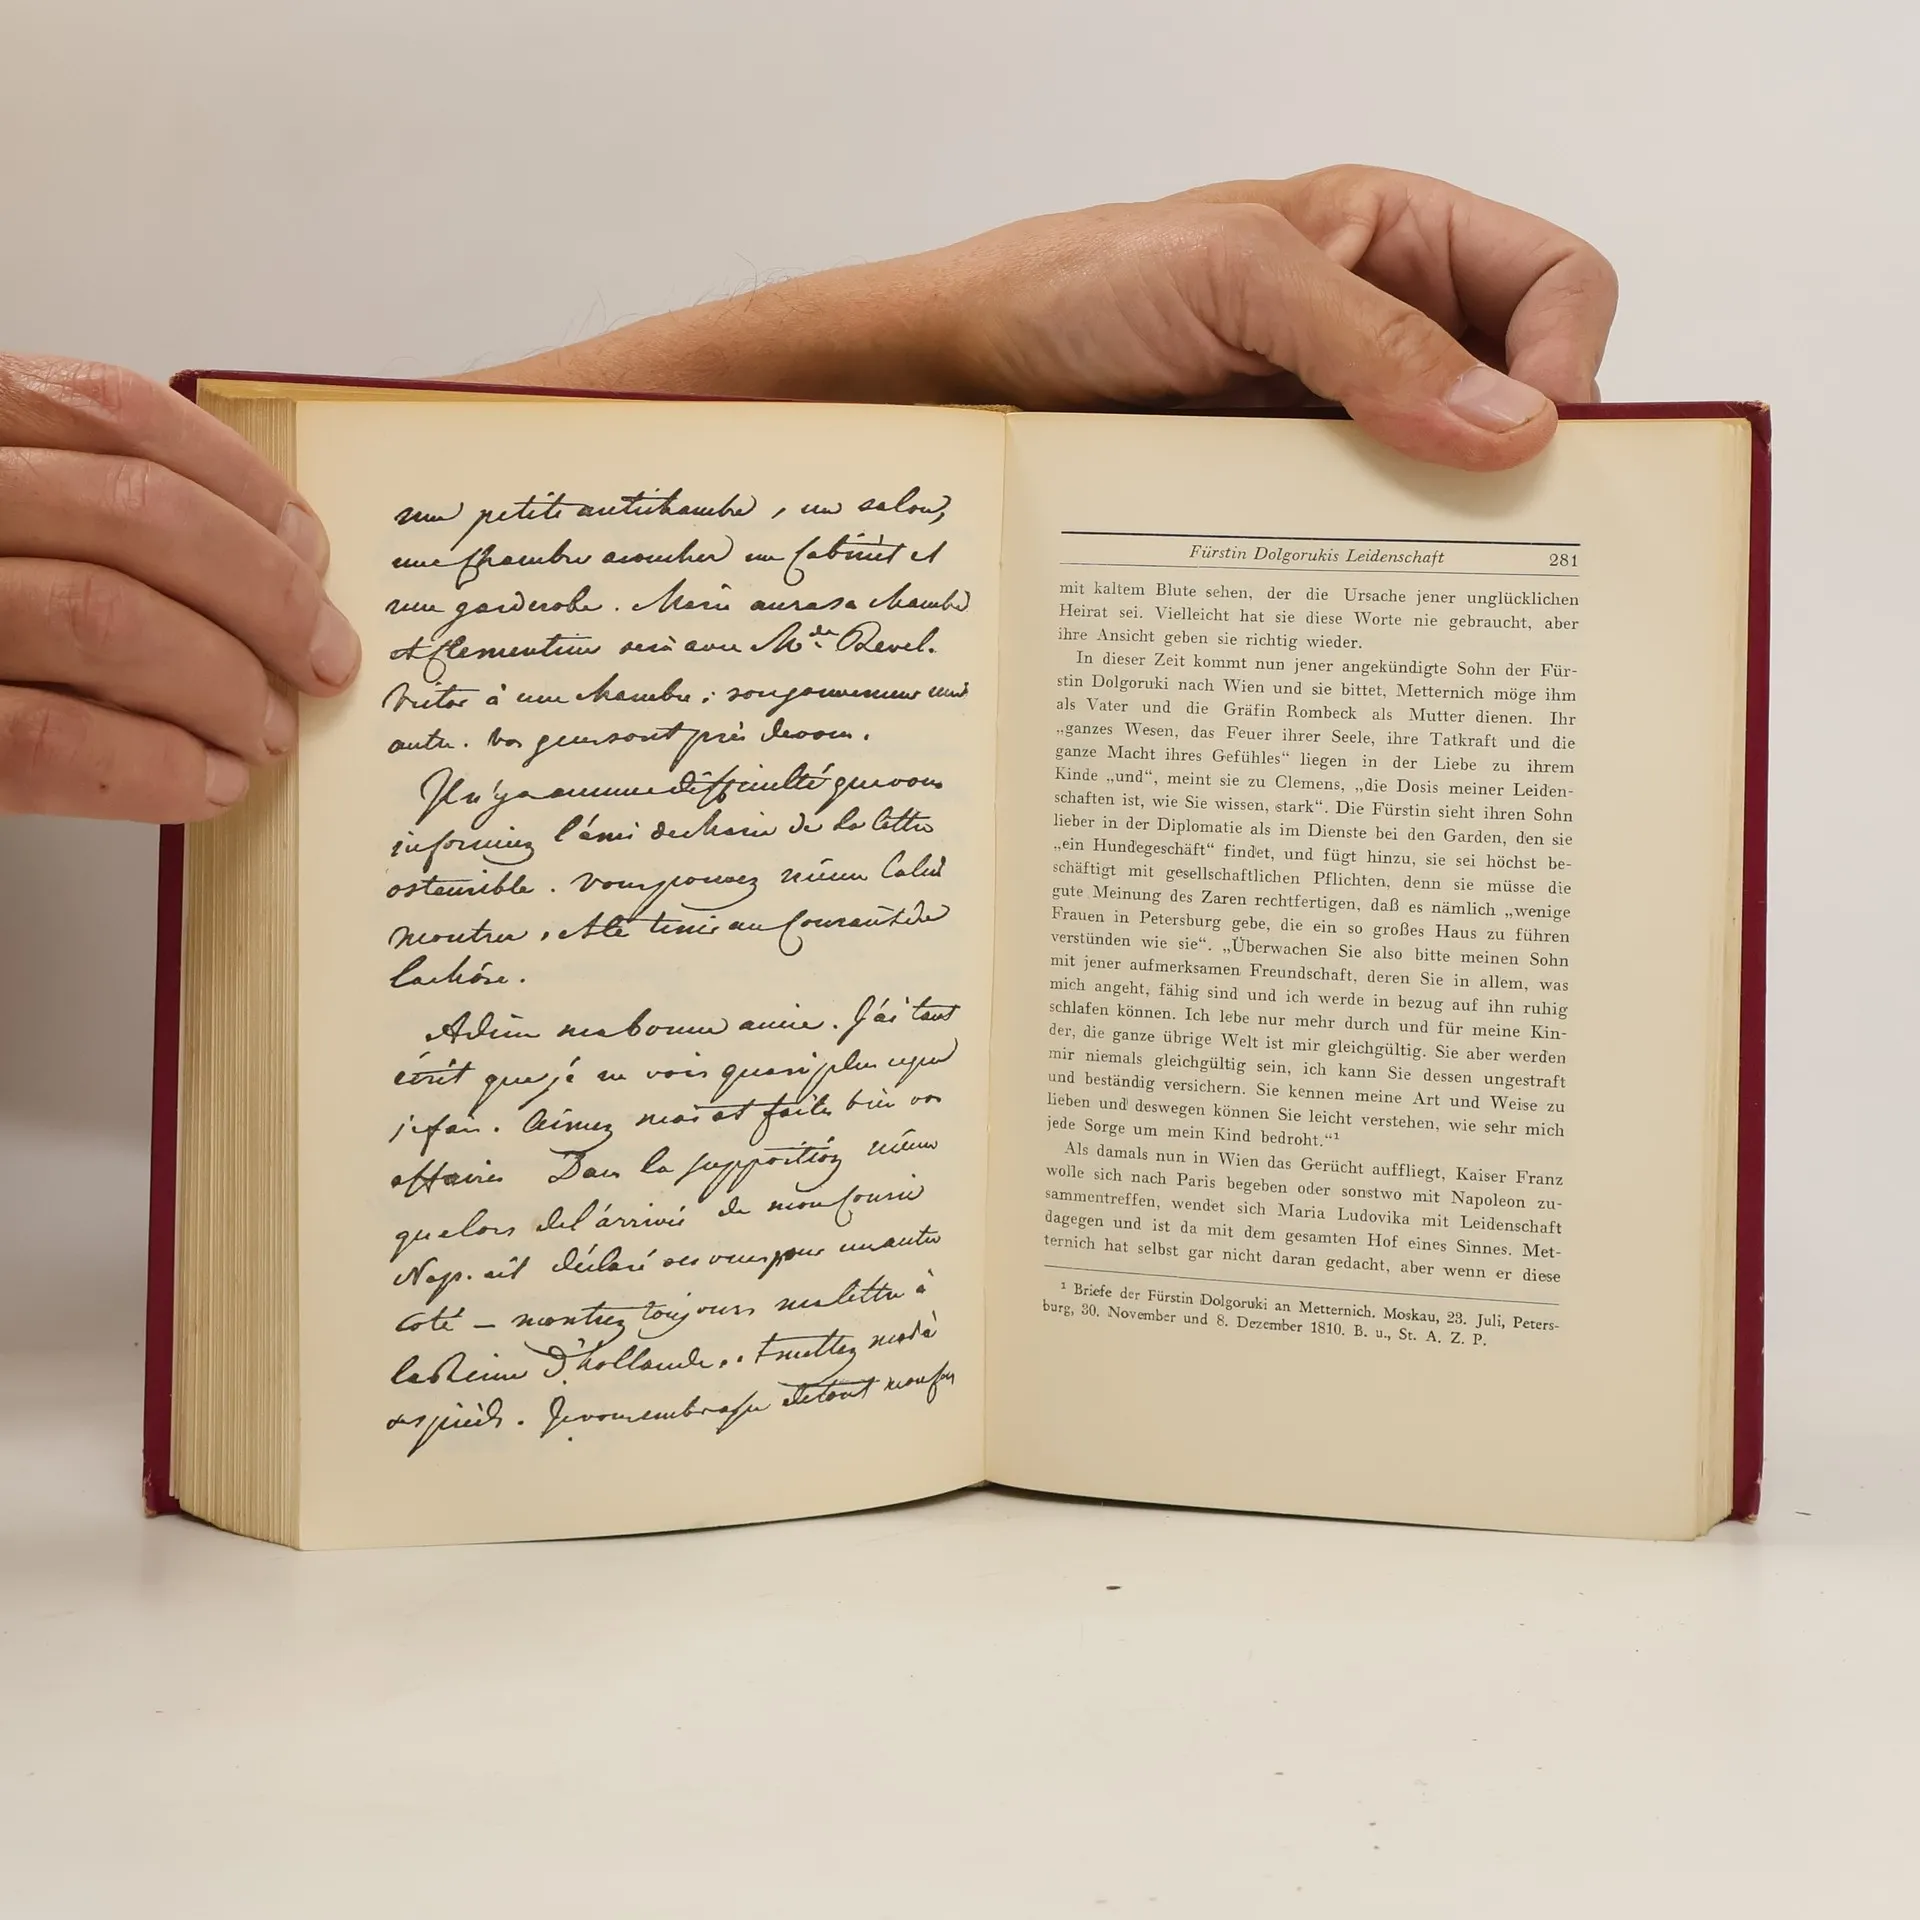 une petite antichambre, un salon,
une chambre à coucher un Cabinet et
une garderobe. Marie aura sa chambre
et Clementine sera avec Mde Revel.
Victor à une chambre; son gouverneur une
autre. Vos gens sont près de vous.
Il n'y a aucune difficulté que vous
informiez l'ami de Marie de la lettre
ostensible. Vous pouvez même la lui
montrer, et le tenir au Courant de
la chose.
Adieu ma bonne amie. J'ai tant
écrit que je ne vois quasi plus ce que
je fais. Aimez moi et faites bien vos
affaires Dans la supposition même
que lors de l'arrivée de mon Courrier
Nap. ait déclaré ses vues pour un autre
coté — montrez toujours ma lettre à
la Reine d'hollande. mettez moi à
ses pieds. Je vous embrasse de tout mon
Fürstin Dolgorukis Leidenschaft 281
mit kaltem Blute sehen, der die Ursache jener unglücklichen
Heirat sei. Vielleicht hat sie diese Worte nie gebraucht, aber
ihre Ansicht geben sie richtig wieder.
In dieser Zeit kommt nun jener angekündigte Sohn der Für-
stin Dolgoruki nach Wien und sie bittet, Metternich möge ihm
als Vater und die Gräfin Rombeck als Mutter dienen. Ihr
„ganzes Wesen, das Feuer ihrer Seele, ihre Tatkraft und die
ganze Macht ihres Gefühles“ liegen in der Liebe zu ihrem
Kinde „und“, meint sie zu Clemens, „die Dosis meiner Leiden-
schaften ist, wie Sie wissen, stark“. Die Fürstin sieht ihren Sohn
lieber in der Diplomatie als im Dienste bei den Garden, den sie
„ein Hundegeschäft“ findet, und fügt hinzu, sie sei höchst be-
schäftigt mit gesellschaftlichen Pflichten, denn sie müsse die
gute Meinung des Zaren rechtfertigen, daß es nämlich „wenige
Frauen in Petersburg gebe, die ein so großes Haus zu führen
verstünden wie sie“. „Überwachen Sie also bitte meinen Sohn
mit jener aufmerksamen Freundschaft, deren Sie in allem, was
mich angeht, fähig sind und ich werde in bezug auf ihn ruhig
schlafen können. Ich lebe nur mehr durch und für meine Kin-
der, die ganze übrige Welt ist mir gleichgültig. Sie aber werden
mir niemals gleichgültig sein, ich kann Sie dessen ungestraft
und beständig versichern. Sie kennen meine Art und Weise zu
lieben und deswegen können Sie leicht verstehen, wie sehr mich
jede Sorge um mein Kind bedroht.“¹
Als damals nun in Wien das Gerücht auffliegt, Kaiser Franz
wolle sich nach Paris begeben oder sonstwo mit Napoleon zu-
sammentreffen, wendet sich Maria Ludovika mit Leidenschaft
dagegen und ist da mit dem gesamten Hof eines Sinnes. Met-
ternich hat selbst gar nicht daran gedacht, aber wenn er diese
¹ Briefe der Fürstin Dolgoruki an Metternich. Moskau, 23. Juli, Peters-
burg, 30. November und 8. Dezember 1810. B. u., St. A. Z. P.